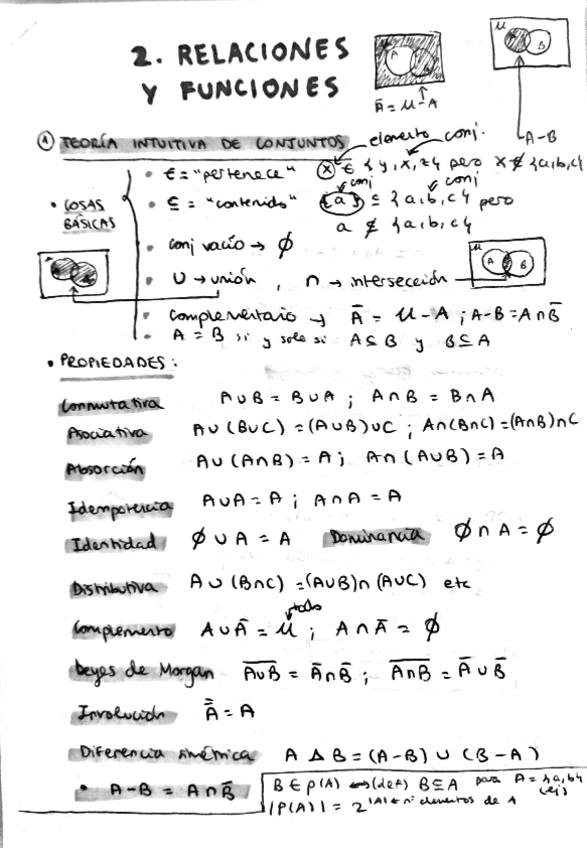 2. RELACIONES
Y FUNCIONES
A
Ā = U - A
U
A B
A-B
① TEORÍA INTUITIVA DE CONJUNTOS
elemento conj.
• COSAS BÁSICAS
• ∈ = "pertenece" x ∈ {y, x, z} pero x ∉ {a,b,c}
conj conj
• ⊆ = "contenido" {a} ⊆ {a,b,c} pero
a ⊈ {a,b,c}
• conj vacío → ∅
• ∪ → unión, ∩ → intersección
U
A B
• complementario → Ā = U - A ; A-B = A∩B̄
• A = B si y solo si A⊆B y B⊆A
• PROPIEDADES:
Conmutativa A∪B = B∪A ; A∩B = B∩A
Asociativa A∪(B∪C) = (A∪B)∪C ; A∩(B∩C) = (A∩B)∩C
Absorción A∪(A∩B) = A ; A∩(A∪B) = A
Idempotencia A∪A = A ; A∩A = A
Identidad ∅∪A = A Dominancia ∅∩A = ∅
Distributiva A∪(B∩C) = (A∪B)∩(A∪C) etc
todo
Complemento A∪Ā = U ; A∩Ā = ∅
Leyes de Morgan A̅∪̅B̅ = Ā∩B̄ ; A̅∩̅B̅ = Ā∪B̄
Involución A̿ = A
Diferencia simétrica A Δ B = (A-B) ∪ (B-A)
• A-B = A∩B̄
B ∈ P(A) ↔ (def) B⊆A para A = {a,b} (ej)
|P(A)| = 2^|A| ← nº elementos de A